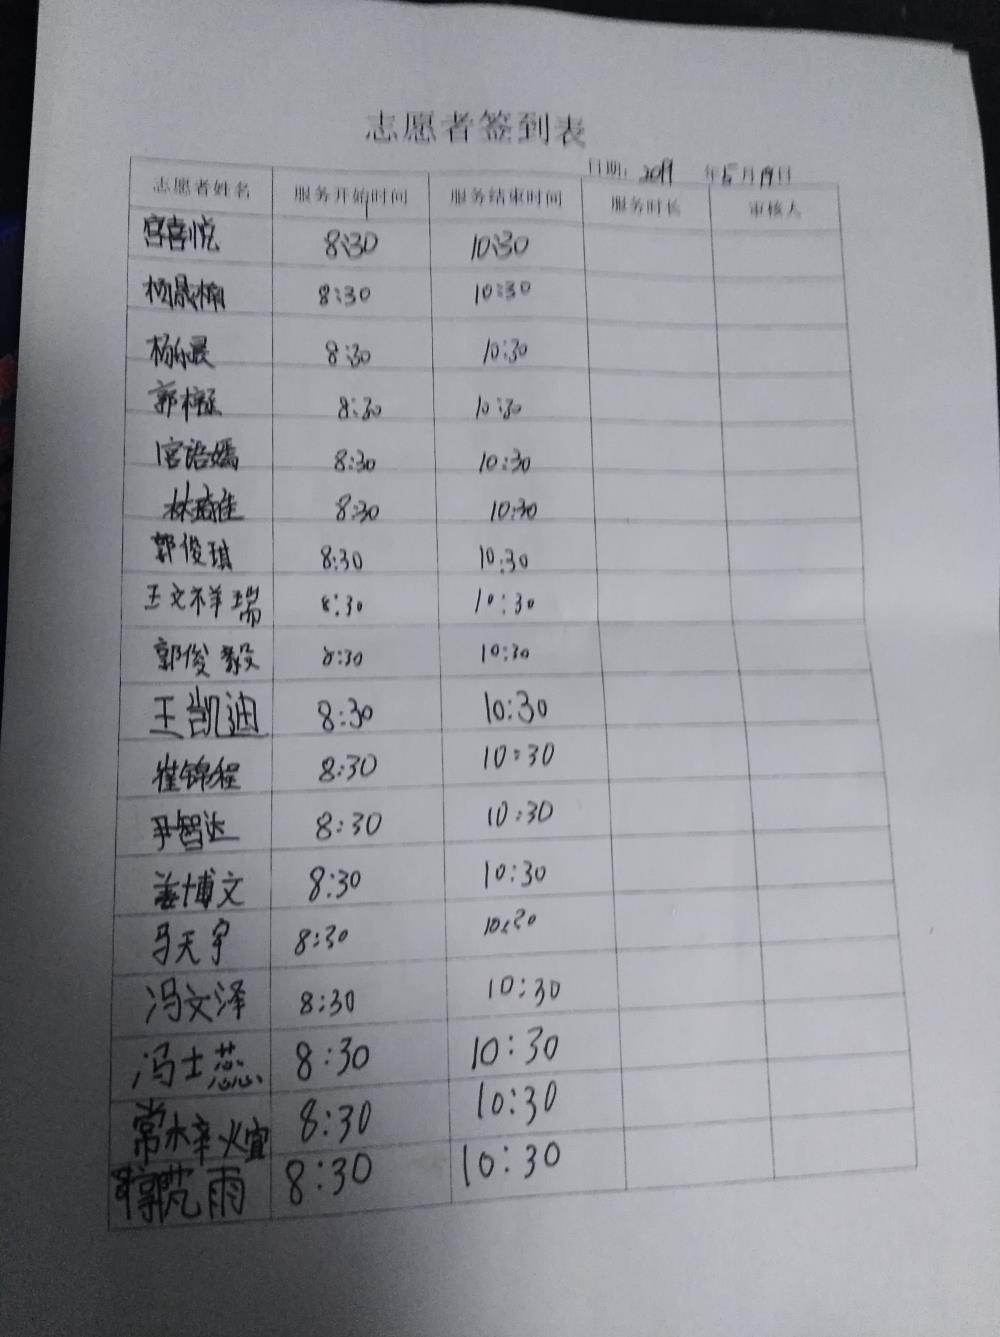 志愿者签到表
日期： 2019 年 月 19日
志愿者姓名 服务开始时间 服务结束时间 服务时长 审核人
宫喜悦 8:30 10:30
杨晟楠 8:30 10:30
杨 晨 8:30 10:30
郭 8:30 10:30
宫语嫣 8:30 10:30
林 佳 8:30 10:30
郭俊琪 8:30 10:30
王文祥瑞 8:30 10:30
郭俊毅 8:30 10:30
王凯迪 8:30 10:30
崔锦程 8:30 10:30
尹智达 8:30 10:30
姜博文 8:30 10:30
马天宇 8:30 10:30
冯文泽 8:30 10:30
冯士蕊 8:30 10:30
常梓煊 8:30 10:30
雨 8:30 10:30